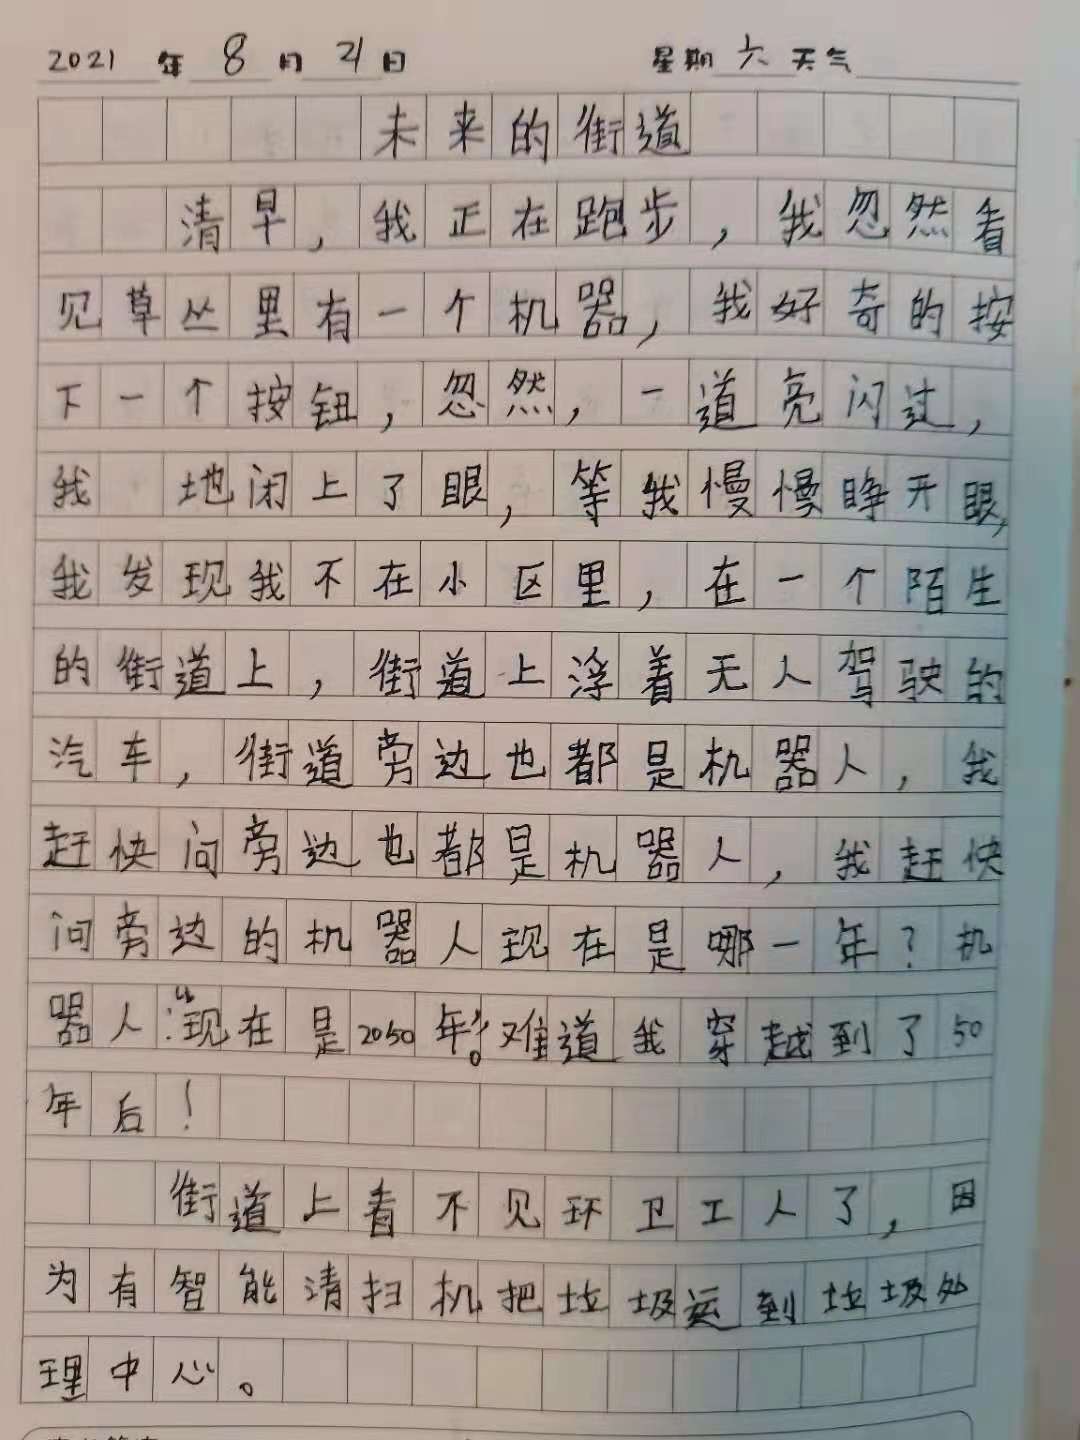 2021年8月21日 星期六 天气
未来的街道
清早，我正在跑步，我忽然看
见草丛里有一个机器，我好奇的按
下一个按钮，忽然，一道亮闪过，
我 地闭上了眼，等我慢慢睁开眼，
我发现我不在小区里，在一个陌生
的街道上，街道上浮着无人驾驶的
汽车，街道旁边也都是机器人，我
赶快问旁边也都是机器人，我赶快
问旁边的机器人现在是哪一年？机
器人：“现在是2050年。”难道我穿越到了50
年后！
街道上看不见环卫工人了，因
为有智能清扫机把垃圾运到垃圾处
理中心。